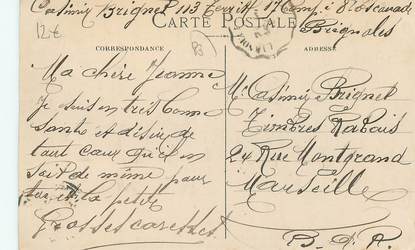 Casimir Brignel 113 Territ 17 Comp à
Brignoles
12€
CARTE POSTALE
CORRESPONDANCE
ADRESSE
Ma chère Jeanne
Je suis en très bonne
sante et désire de
tout caur qu'il en
soit de même pour
toi et la petite
Grosses caresses
Mr Casimir Brignel
Timbres Rabais
24 Rue Montgrand
Marseille
B. d. R.